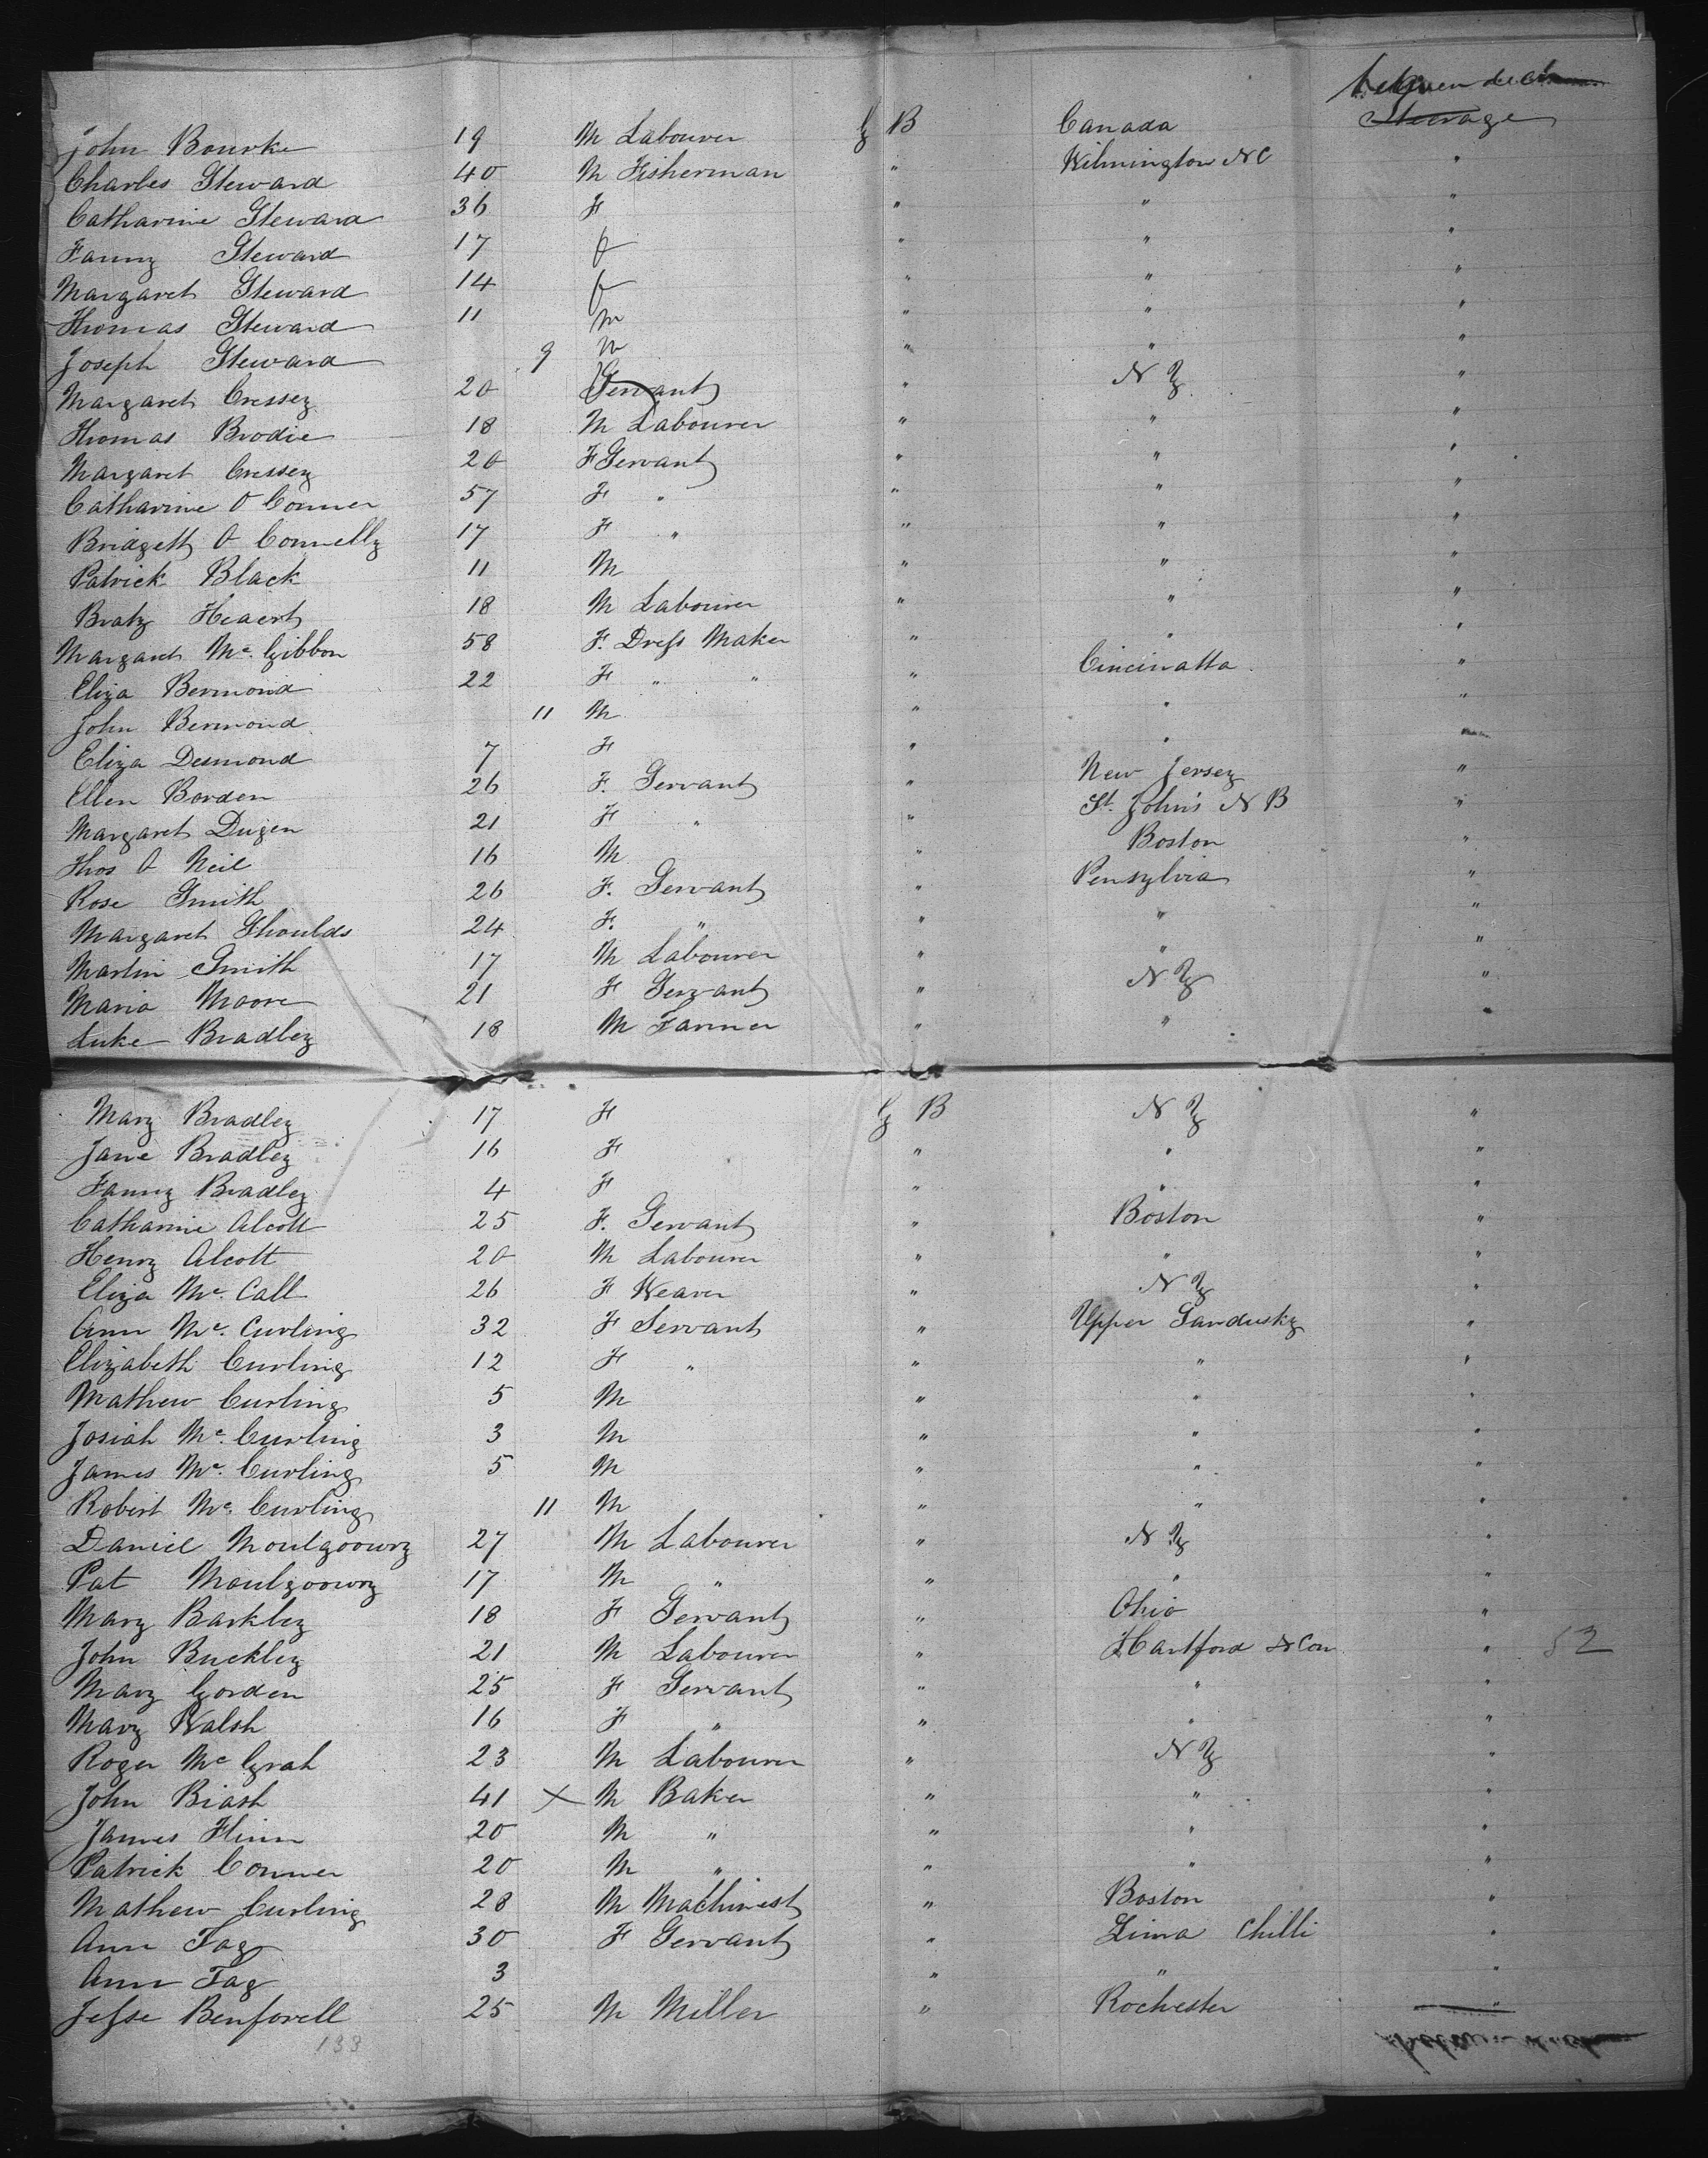 between decks
John Bourke 19 M Labourer G B Canada Steerage
Charles Steward 40 M Fisherman " Wilmington N C "
Catharine Steward 36 F " " "
Fanny Steward 17 f " " "
Margaret Steward 14 f " " "
Thomas Steward 11 m " " "
Joseph Steward 9 m " " "
Margaret Cressey 20 Servant " N Y "
Thomas Brodie 18 M Labourer " " "
Margaret Cressey 20 F Servant " " "
Catharine O Conner 57 F " " " "
Bridgett O Connelly 17 F " " " "
Patrick Black 11 M " " "
Bratz Heaert 18 M Labourer " " "
Margaret Mc Gibbon 58 F. Dress Maker " " "
Eliza Bermond 22 F " " " Cincinatta "
John Bermond 11 M " " "
Eliza Desmond 7 F " " "
Ellen Borden 26 F. Servant " New Jersey "
Margaret Dugen 21 F " " St. John's N B "
Thos O Neil 16 M " Boston "
Rose Smith 26 F. Servant " Pensylvia "
Margaret Shoulds 24 F. " " " "
Martin Smith 17 M Labourer " " "
Maria Moore 21 F Servant " N Y "
Luke Bradley 18 M Farmer " " "
Mary Bradley 17 F G B N Y "
Jane Bradley 16 F " " "
Fanny Bradley 4 F " " "
Catharine Alcott 25 F. Servant " Boston "
Henry Alcott 20 M Labourer " " "
Eliza Mc. Call 26 F Weaver " N Y "
Ann Mc. Curling 32 F Servant " Upper Sandusky "
Elizabeth Curling 12 F " " " "
Mathew Curling 5 M " " "
Josiah Mc. Curling 3 M " " "
James Mc. Curling 5 M " " "
Robert Mc. Curling 11 M " " "
Daniel Moulgoowry 27 M Labourer " N Y "
Pat Moulgoowry 17 M " " " "
Mary Barkley 18 F Servant " Ohio "
John Buckley 21 M Labourer " Hartford N Con " 52
Mary Gorden 25 F Servant " " "
Mary Walsh 16 F " " " "
Roger Mc Grah 23 M Labourer " N Y "
John Biash 41 X M Baker " " "
James Flinn 20 M " " " "
Patrick Conner 20 M " " " "
Mathew Curling 28 M Machinest " Boston "
Ann Fag 30 F Servant " Lima Chilli "
Ann Fag 3 " " "
Jesse Benforell 25 M Miller " Rochester "
133